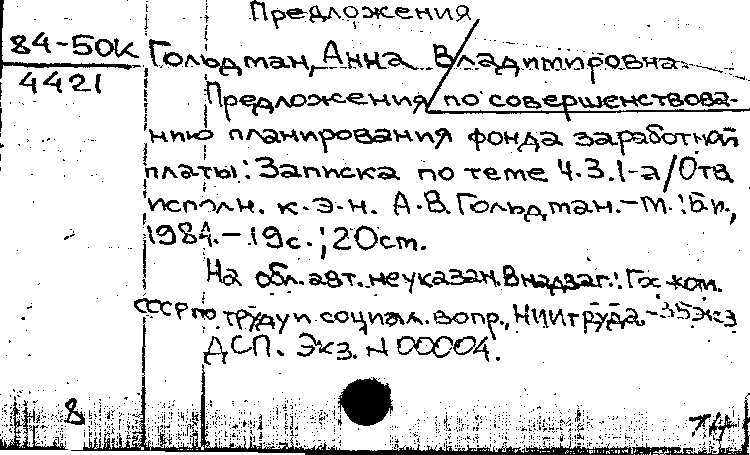 Предложения
84-50к Гольдман, Анна Владимировна.
4421
Предложения по совершенствова-
нию планирования фонда заработной
платы: Записка по теме 4.3.1-а / Отв
исполн. к.э.н. А.В. Гольдман. - М.: Б.и.,
1984. - 19с.; 20ст.
На обл. авт. не указан. В надзаг.: Гос. ком.
СССР по труду и социал. вопр., НИИ труда - 35экз
ДСП. Экз. N 00004.
8